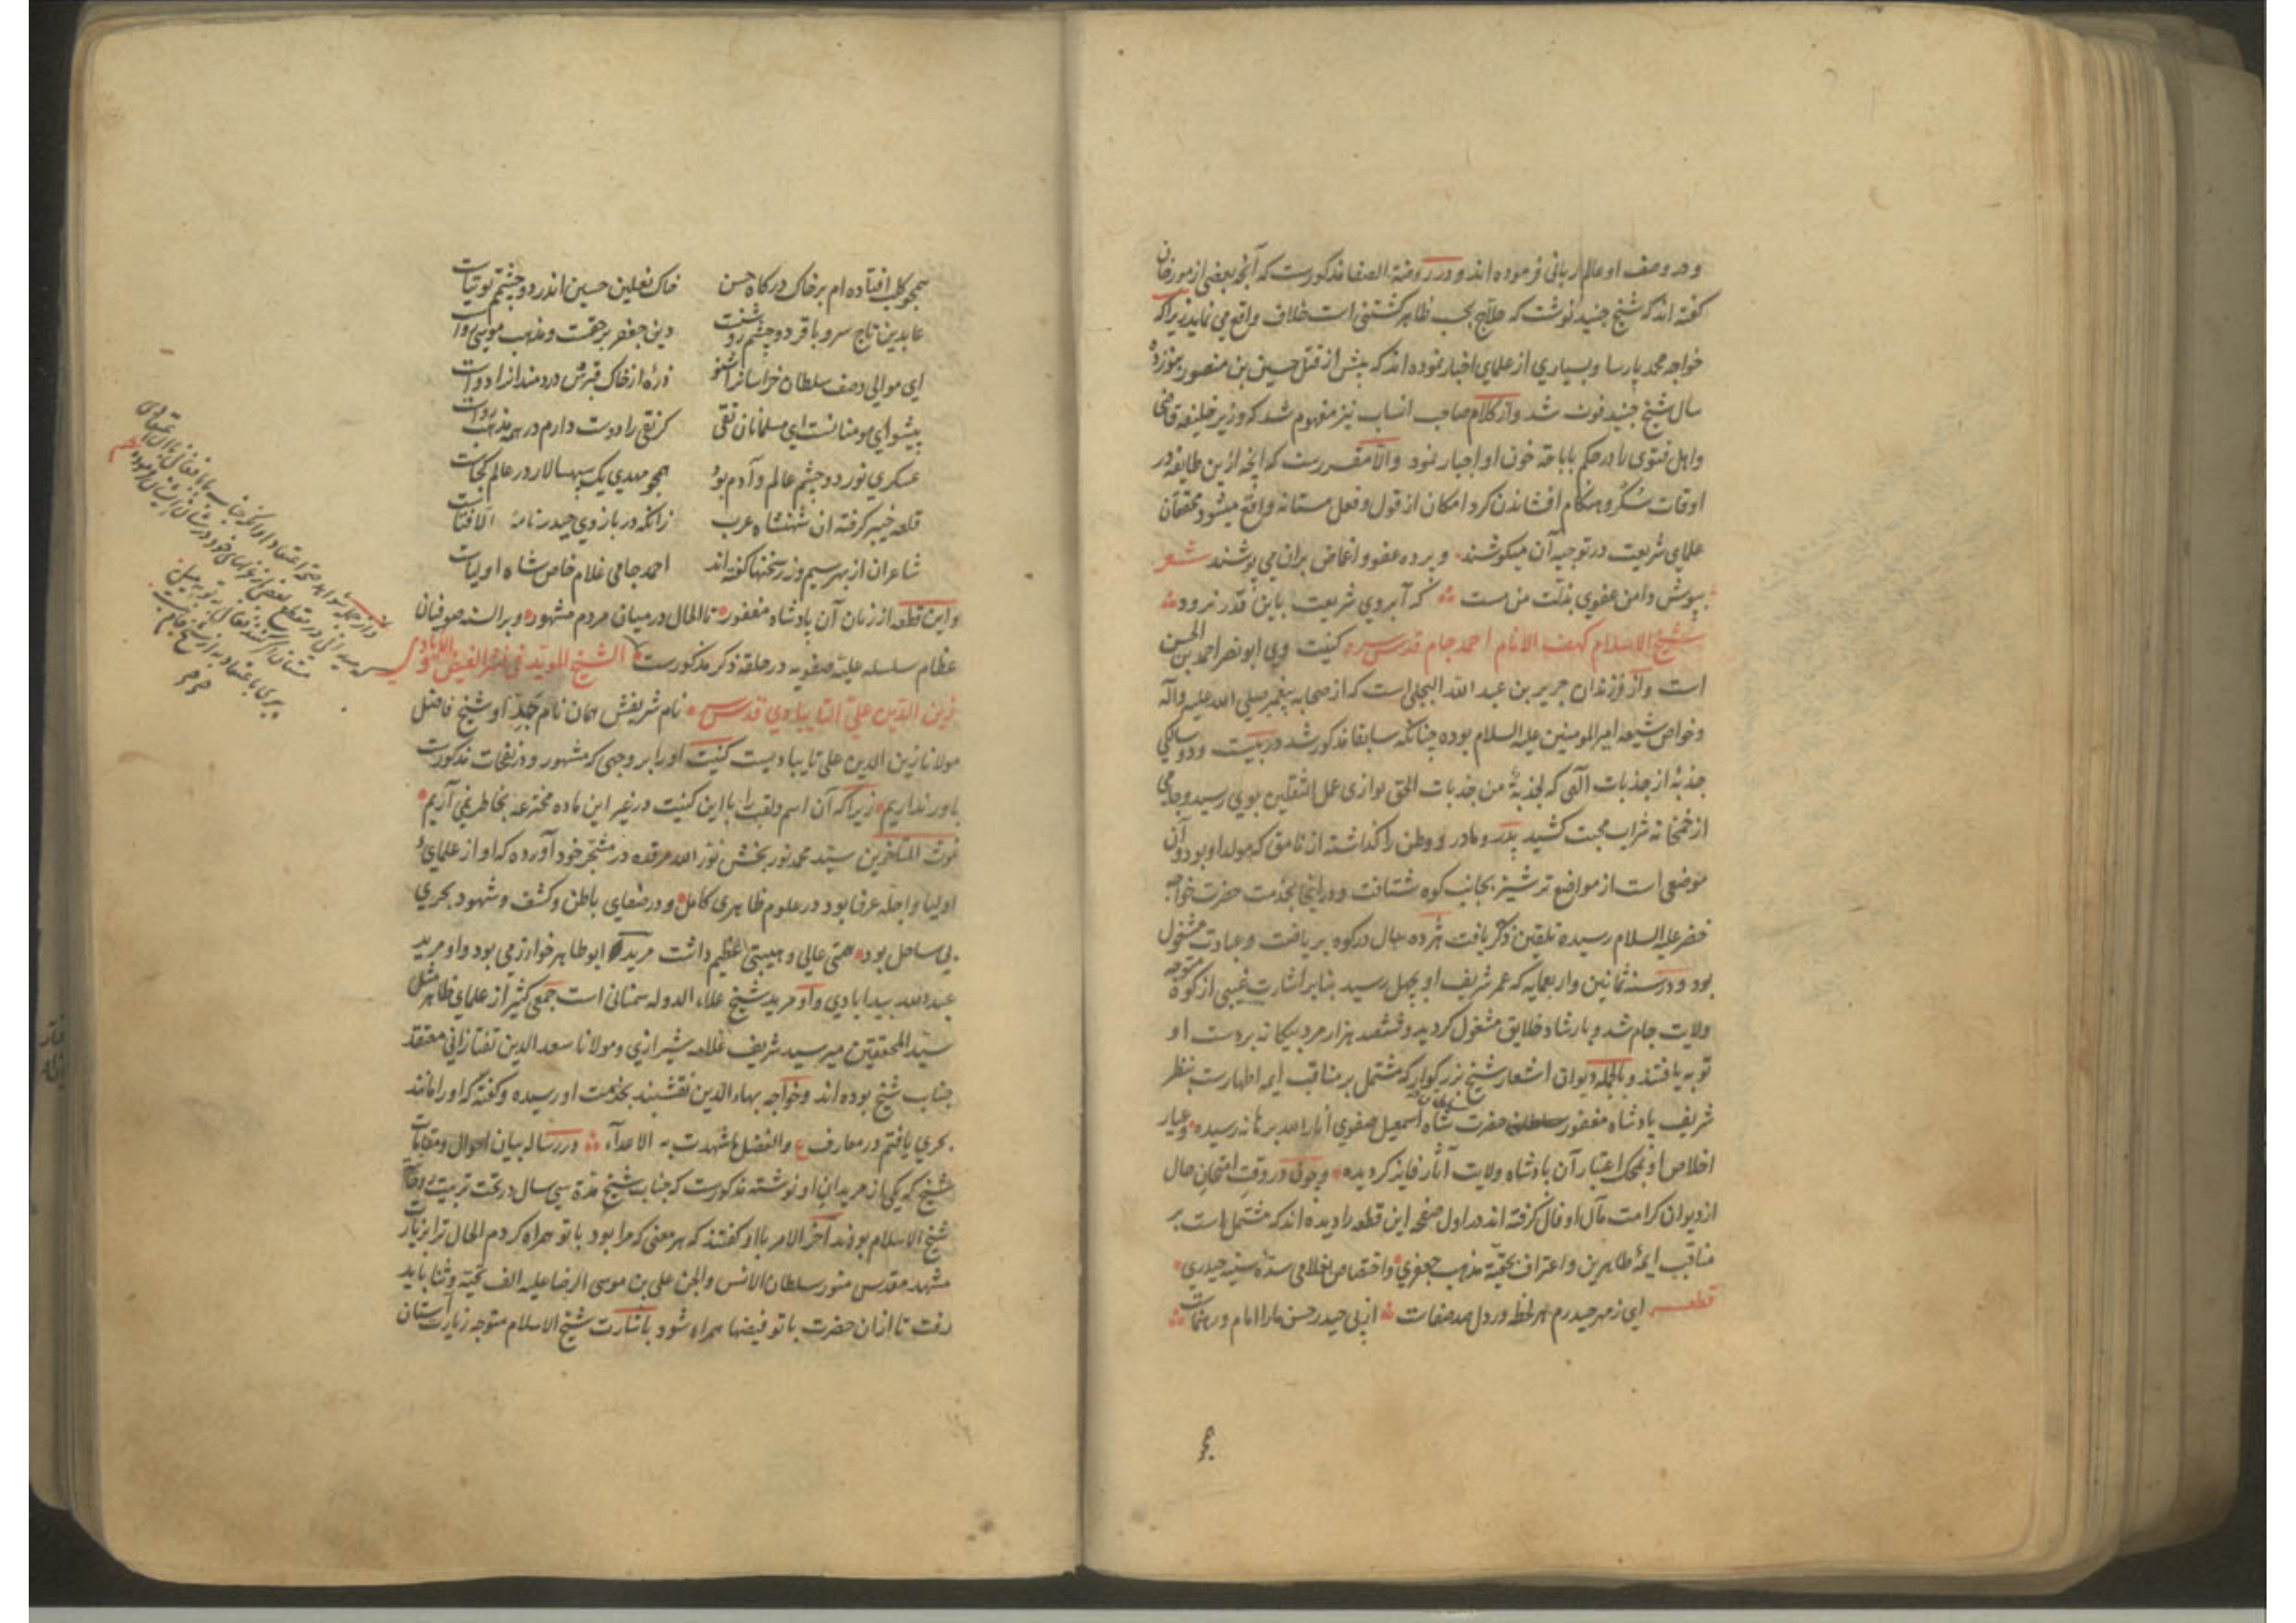 و در وصف او عالم ربانی فرموده اند و در روضة الصفا مذکورست که آنچه بعضی از مورخان
گفته اند که شیخ جنید نوشت که حلاج بحسب ظاهر کشتنی است خلاف واقع می نماید زیرا که
خواجه محمد پارسا و بسیاری از علمای اخبار نموده اند که پیش از قتل حسین بن منصور بنوزده
سال شیخ جنید فوت شد و از کلام صاحب انساب نیز مفهوم شد که وزیر خلیفه قاضی
و اهل فتوی را در حکم باباحه خون او اجبار نمود و الا مقررست که آنچه ازین طایفه در
اوقات سکر و هنگام افشاندن گرد امکان از قول و فعل مستانه واقع میشود محققان
علمای شریعت در توجیه آن میکوشند و پرده عفو و اغماض بران می پوشند شعر
بپوش دامن عفوی بذلت من مست که آبروی شریعت باین قدر نرود
شیخ الاسلام کهف الانام احمد جام قدس سره کنیت وی ابو نصر احمد بن الحسن
است و از فرزندان جریر بن عبد الله البجلی است که از صحابه پیغمبر صلی الله علیه و آله
و خواص شیعه امیر المومنین علیه السلام بوده چنانکه سابقا مذکور شد در بیست و دو سالگی
جذبهٔ از جذبات آلهی که لجذبة من جذبات الحق توازی عمل الثقلین بوی رسید و جامی
از خمخانه شراب محبت کشید پدر و مادر و وطن را گذاشته از نامق که مولد او بود و آن
موضعی است از مواضع ترشیز بجانب کوه شتافت و در انجا بخدمت حضرت خواجه
خضر علیه السلام رسیده تلقین ذکر یافت هژده سال در کوه بریاضت و عبادت مشغول
بود و در سنه ثمانین و اربعمایه که عمر شریف او بچهل رسید بنابر اشارت غیبی از کوه متوجه
ولایت جام شد و بارشاد خلایق مشغول گردید و ششصد هزار مرد بیگانه بر دست او
توبه یافتند و بالجمله دیوان اشعار شیخ بزرگوار که مشتمل بر مناقب ایمه اطهارست بنظر
شریف پادشاه مغفور حضرت شاه اسمعیل صفوی انار الله برهانه رسیده و عیار
اخلاص او بمحک اعتبار آن پادشاه ولایت آثار فایز گردیده و چون در وقت امتحان حال
از دیوان کرامت مآل او فال گرفته اند در اول صفحه این قطعه را دیده اند که مشتمل است بر
مناقب ایمهٔ طاهرین و اعتراف بحقیة مذهب جعفری و اختصاص بغلامی سدهٔ سنیه حیدری
قطعه ای ز مهر حیدرم هر لحظه در دل صد صفاست از پی حیدر حسن ما را امام و رهنماست
همچو
همچو کلب افتاده ام بر خاک درکاه حسن خاک نعلین حسین اندر دو چشمم توتیاست
عابدین تاج سر و باقر دو چشم روشنست دین جعفر بر حقست و مذهب موسی رواست
ای موالی وصف سلطان خراسانرا شنو ذرهٔ از خاک قبرش دردمندانرا دواست
پیشوای مومنانست ای مسلمانان تقی گر نقی را دوست دارم در همه مذهب رواست
عسکری نور دو چشم عالم و آدم بود همچو مهدی یک سپهسالار در عالم کجاست
قلعه خیبر گرفته آن شهنشاه عرب زانکه در بازوی حیدر نامهٔ الا فتاست
شاعران از بهر سیم و زر سخنها گفته اند احمد جامی غلام خاص شاه اولیاست
و این قطعه از زمان آن پادشاه مغفور تا الحال در میان مردم مشهود و بر السنه صوفیان
عظام سلسله علیه صفویه در حلقه ذکر مذکورست الشیخ المؤید فی نشر الفیض و الایادی
زین الدین علی التایبادی قدس سره نام شریفش همان نام جد او شیخ فاضل
مولانا زین الدین علی تایبادیست کنیت او را بر وجهی که مشهور و در نفحات مذکورست
باور نداریم زیرا که آن اسم و لقب را با این کنیت در غیر این ماده مخترعه بخاطر نمی آریم
غوث المتاخرین سید محمد نوربخش نور الله مرقده در مشجر خود آورده که او از علمای
اولیا و اجله عرفا بود در علوم ظاهری کامل و در صفای باطن و کشف و شهود بحری
بی ساحل بود همتی عالی و هیبتی عظیم داشت مرید ابو طاهر خوارزمی بود و او مرید
عبد الله بیدابادی و او مرید شیخ علاء الدوله سمنانی است جمعی کثیر از علمای ظاهر مثل
سید المحققین میر سید شریف علامه شیرازی و مولانا سعد الدین تفتازانی معتقد
جناب شیخ بوده اند و خواجه بهاء الدین نقشبند بخدمت او رسیده و گفته که او را مانند
بحری یافتم در معارف ع والفضل ما شهدت به الاعداء و در رساله بیان احوال و مقامات
شیخ که یکی از مریدان او نوشته مذکورست که جناب شیخ مدة سی سال در تحت تربیت
شیخ الاسلام بودند آخر الامر با او گفتند که هر معنی که مرا بود با تو همراه کردم الحال ترا بزیارت
مشهد مقدس منور سلطان الانس والجن علی بن موسی الرضا علیه الف تحیة و ثنا باید
رفت تا از ان حضرت با تو فیضها همراه شود باشارت شیخ الاسلام متوجه زیارت آستان